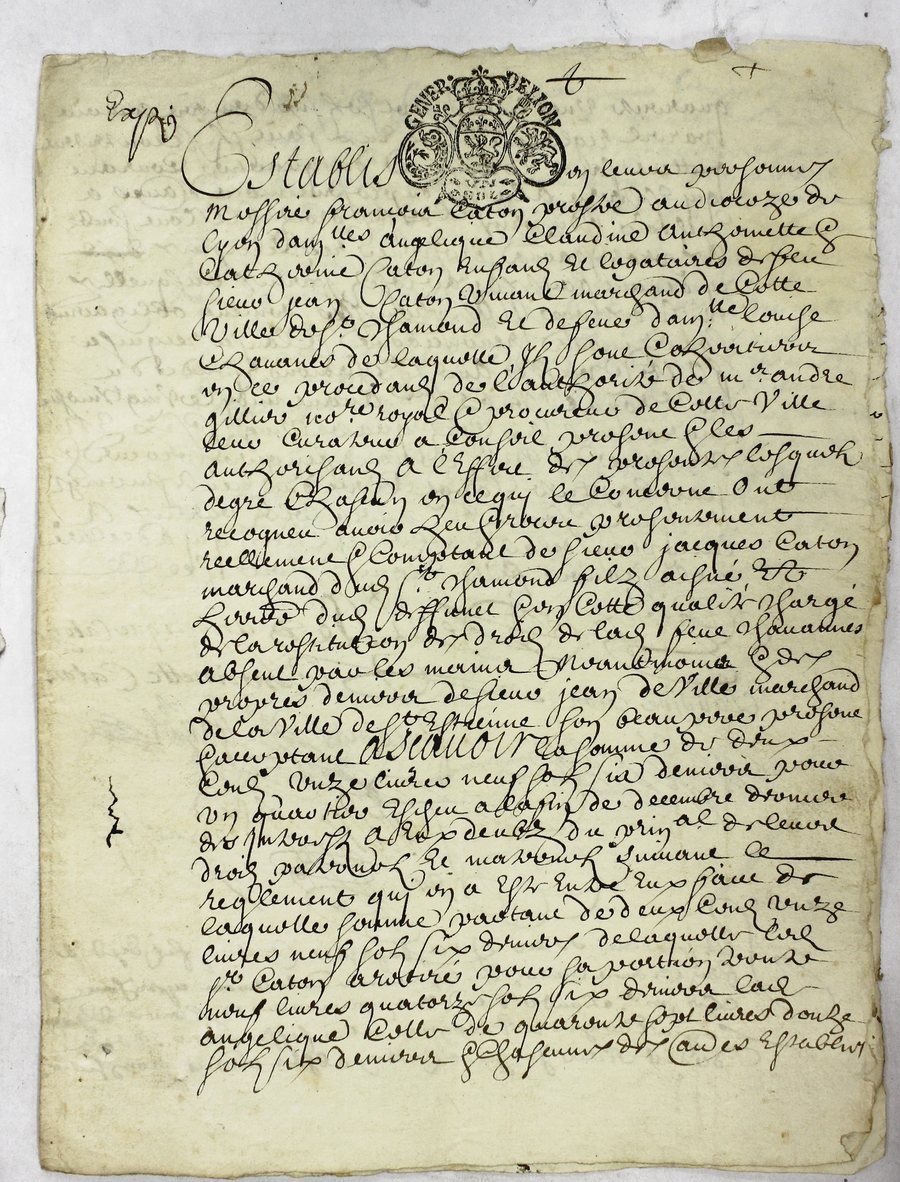 Exp.
GENER. DE LION
UN SOL
Establis en leurs personnes
Messire françois Caton prestre au dioceze de
Lyon dam.lles angelique Claudine Anthoinette &
Catherine Caton enfans et legataires de feu
sieur jean Caton vivant marchand de Cette
Ville de St Chamond et de feue dam.lle louise
Chavanes de laquelle Ils sont Coheritiers
en ce procedans de l'authorité de m.e andre
gillier no.re royal & procureur de Cette Ville
leur Curateur a Conseil present & les
Authorisans A l'Effect des presentes lesquels
degré Chascun en ce qui le Concerne Ont
recogneu avoir Heu & receu presentement
reellement & Comptant de sieur jacques Caton
marchand dud St Chamond filz aisné et
herit dud deffunct & en Cette qualité Chargé
de la restitution des droits de lad feue Chavannes
absent par les mains Neantmoins & des
propres deniers de sieur jean de Ville marchand
de la Ville de St Estienne son beau pere present
& acceptant Ascavoir la somme de deux
Cens unze livres neuf sols six deniers pour
un quartier Escheu a la fin de decembre dernier
des Interests a Eux deubz du prin.al de leurs
droits paternels et maternels suivant le
reglement qui en a esté entre Eux faict de
laquelle somme partant de deux Cens unze
livres neuf sols six deniers de laquelle led
sr Caton a retiré pour sa portion trente
neuf livres quatorze sols six deniers lad
angelique Celle de quarente sept livres douze
sols six deniers & Chascunes des Caudes Establies